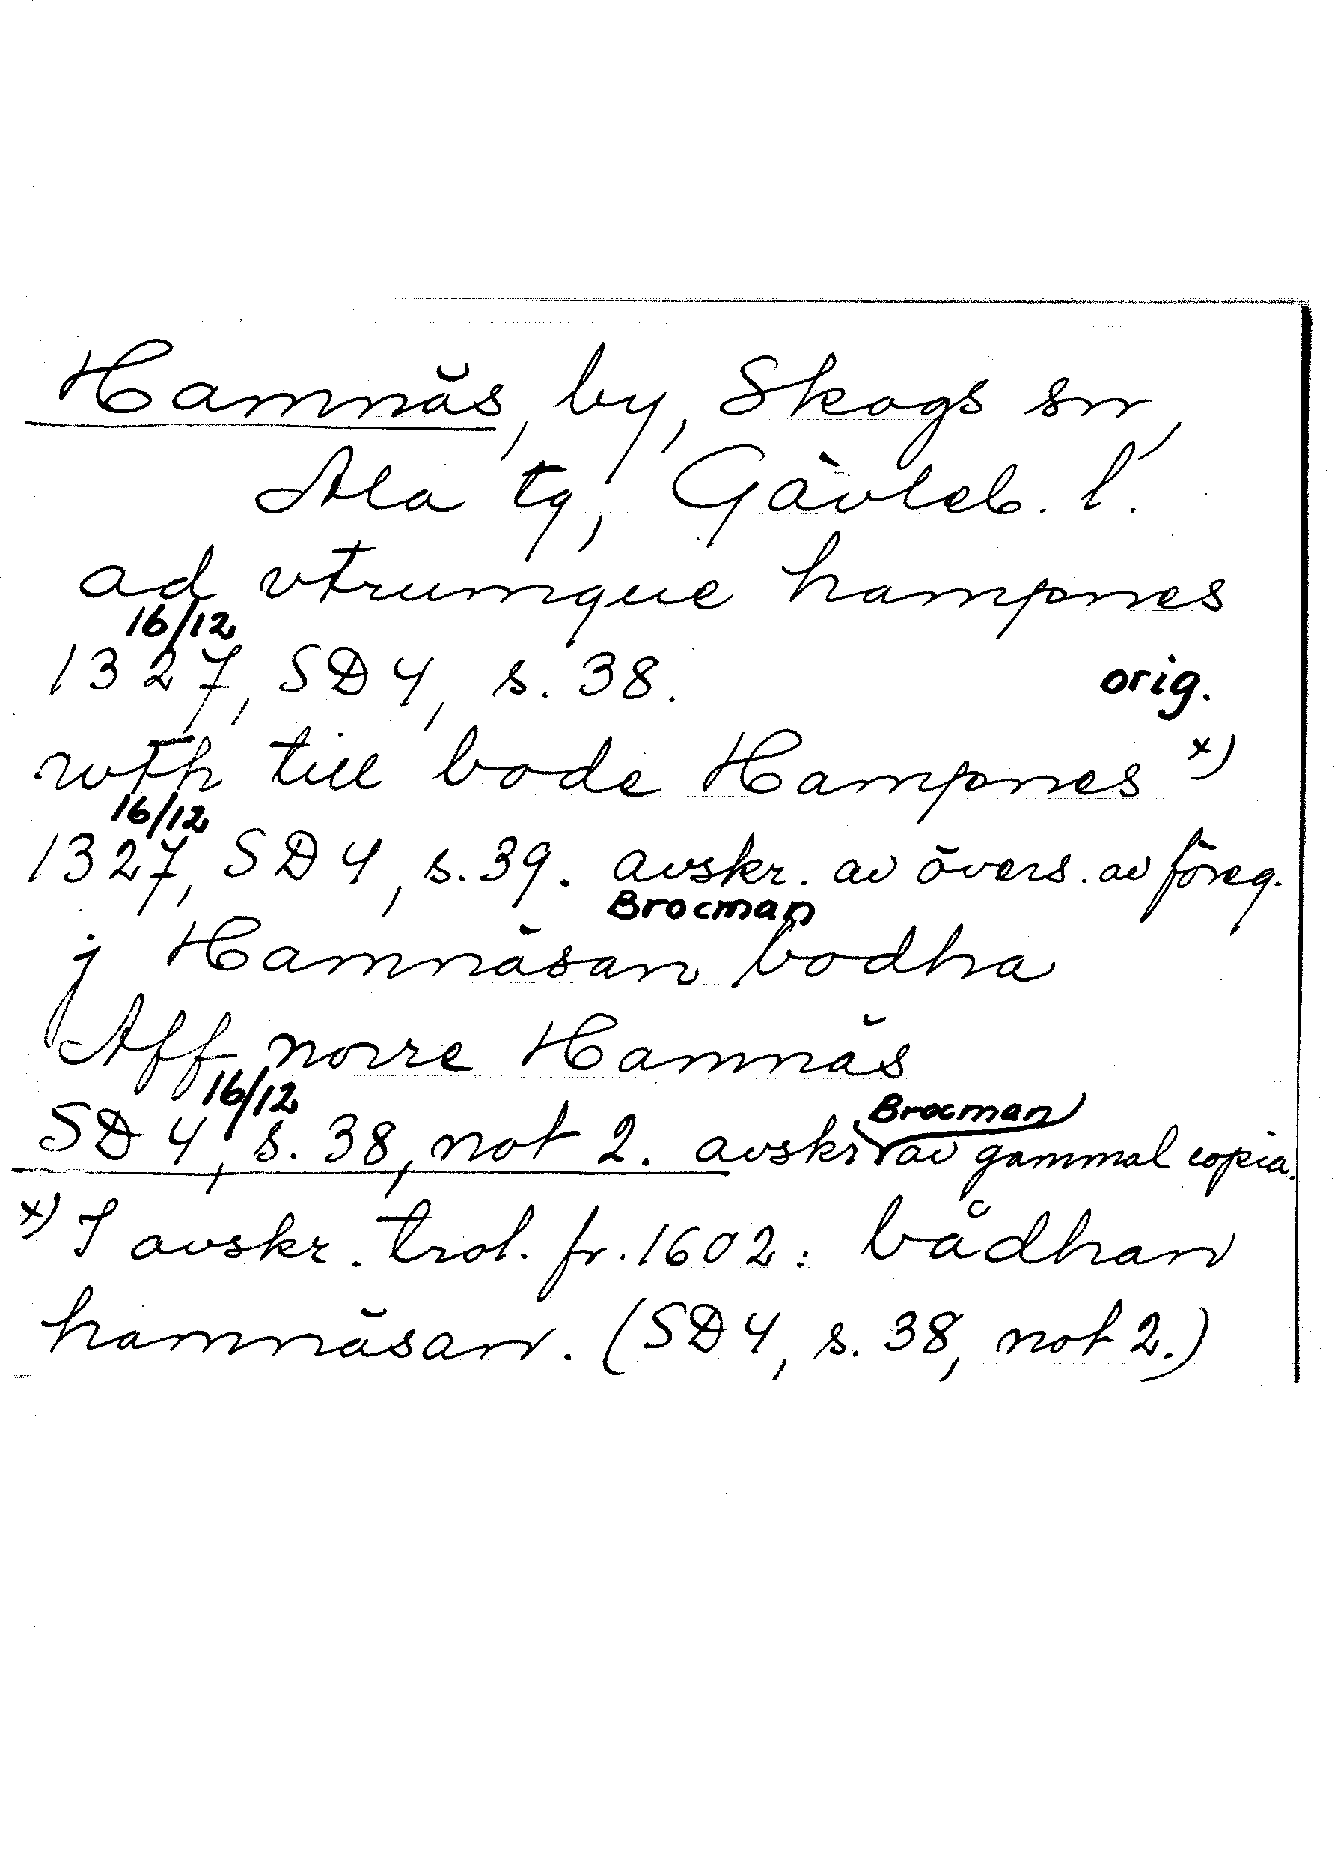 Hamnäs, by, Skogs sn,
Ala tg, Gävleb. l.
ad vtrumque hampnes
16/12
1327, SD 4, s. 38. orig.
wth till bode Hampnes x)
16/12
1327, SD 4, s. 39. avskr. av övers. av föreg.
Brocman
j Hamnäsan bodha
Aff norre Hamnäs
16/12 Brocman
SD 4, s. 38, not 2. avskr. av gammal copia.
x) I avskr. trol. fr. 1602: bådhan
hamnäsan. (SD 4, s. 38, not 2.)